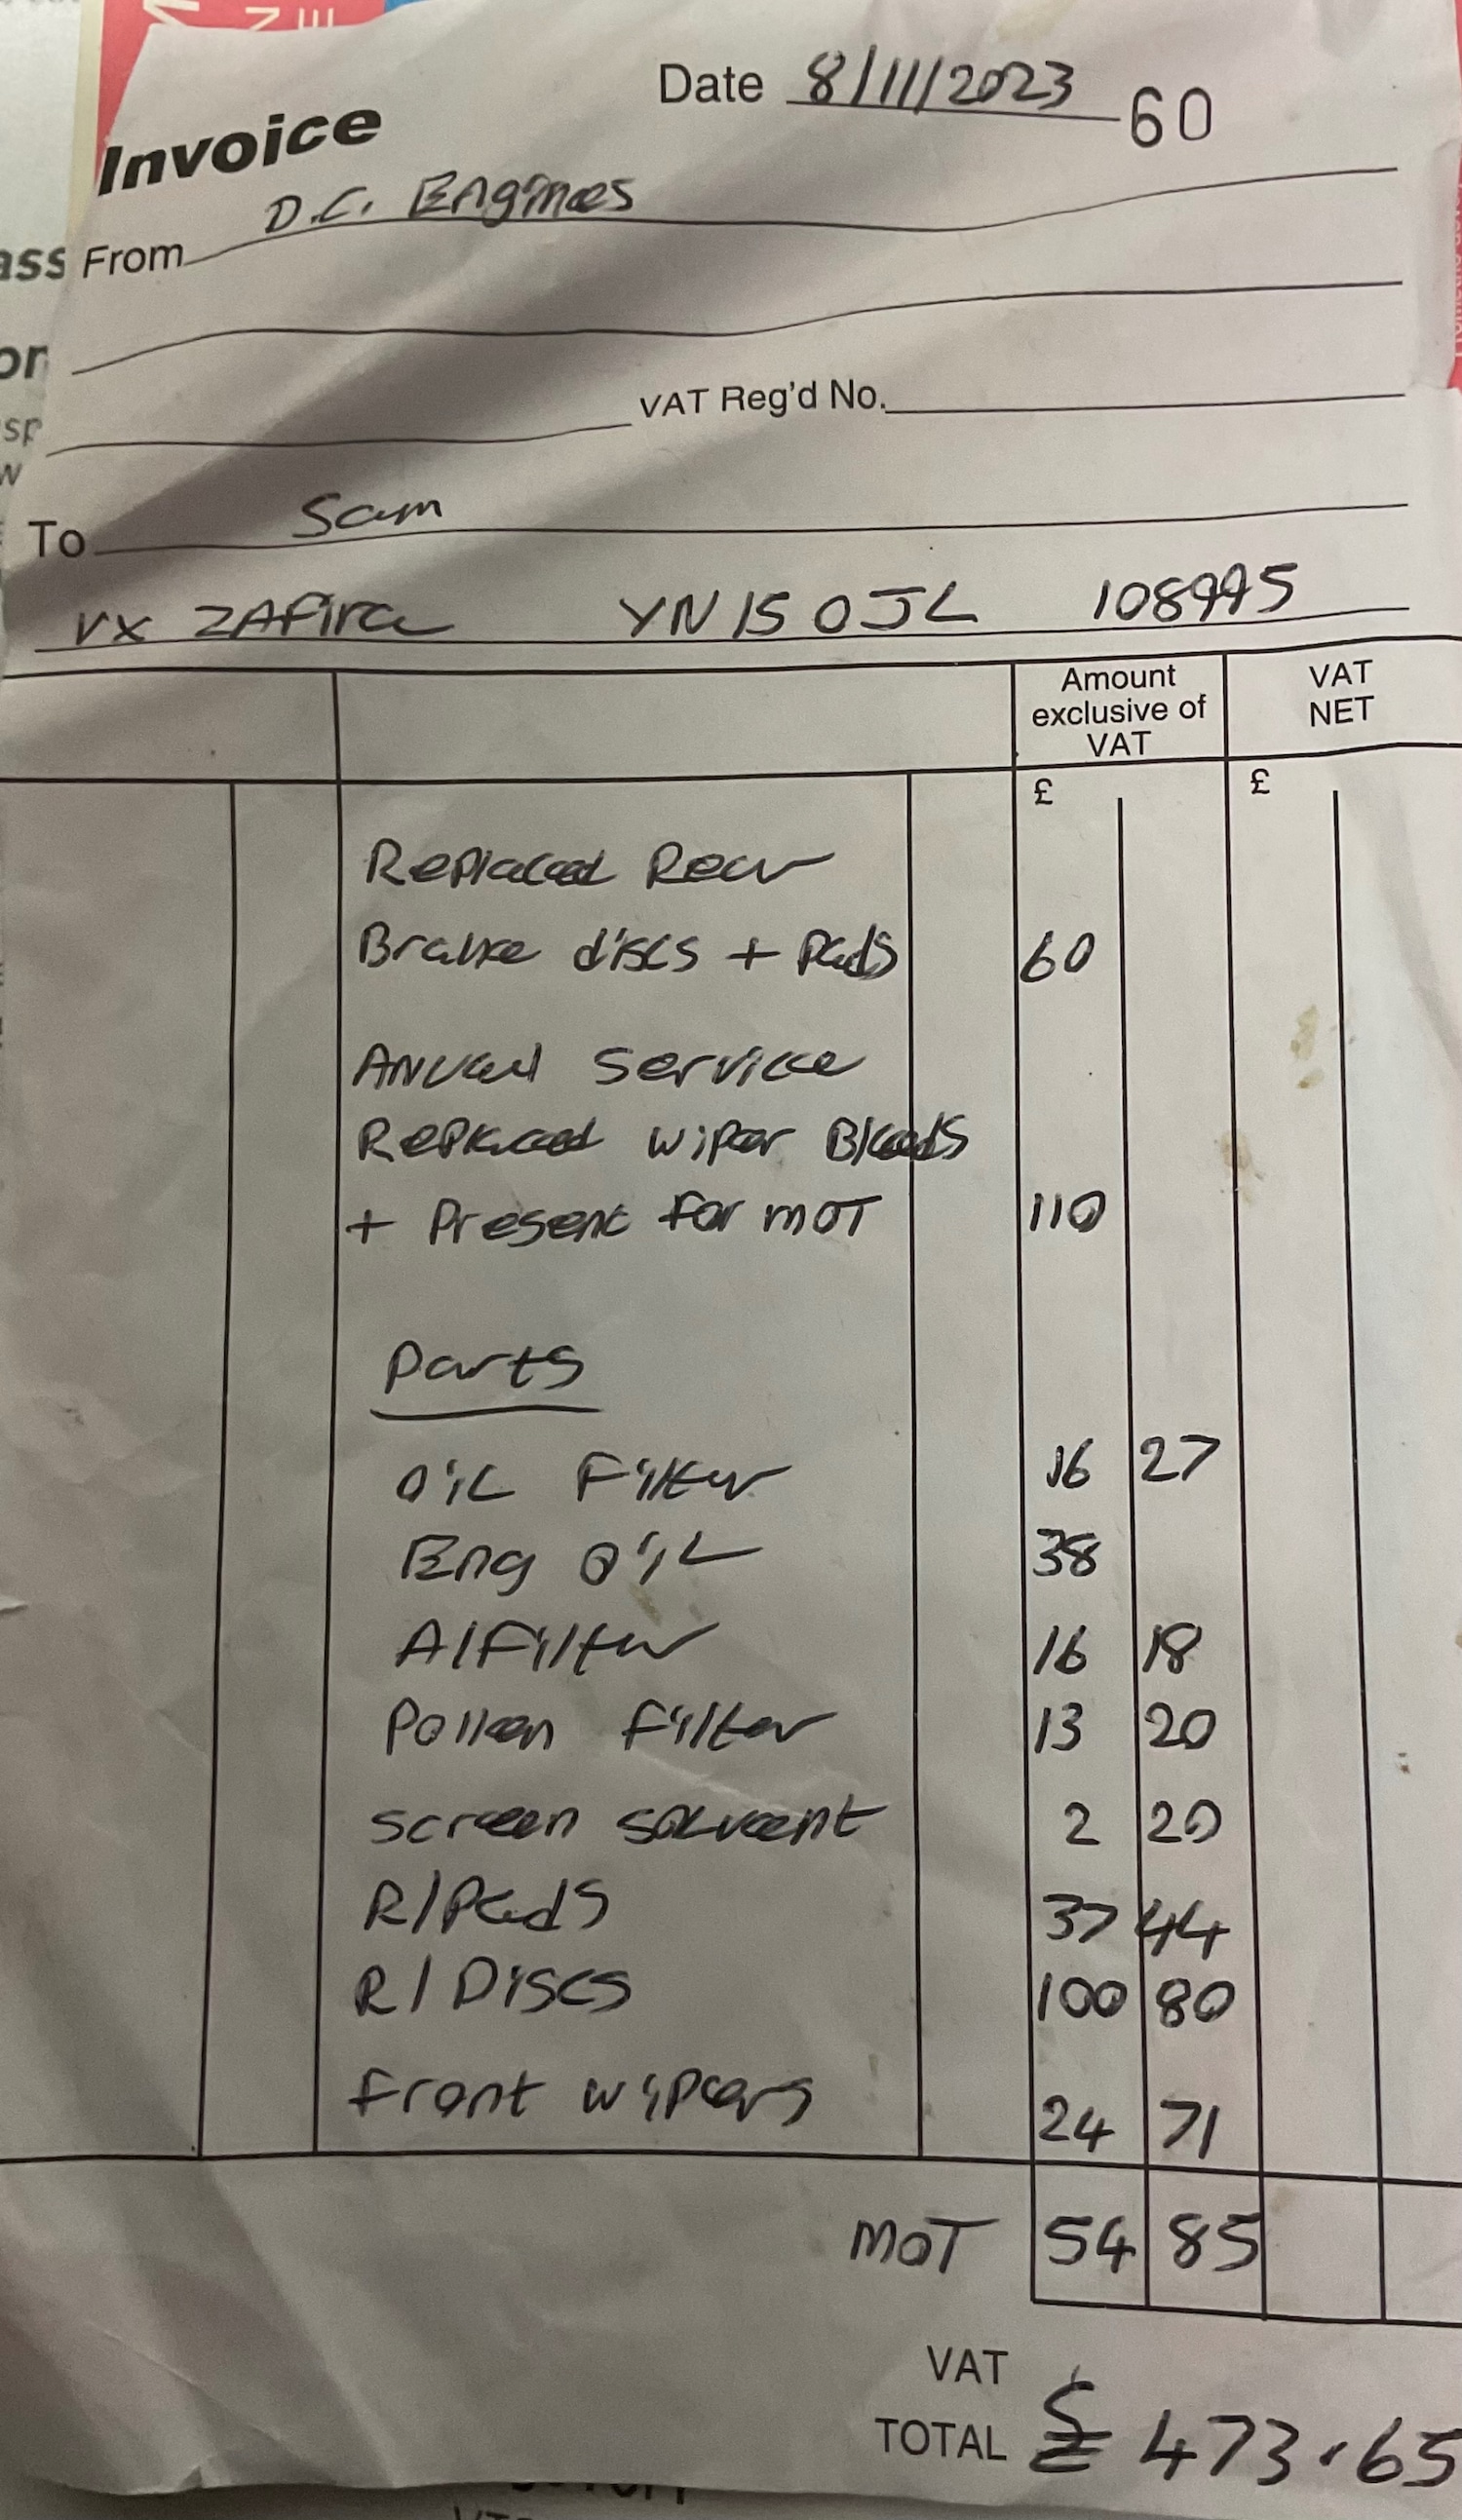 Date 8/11/2023 60
Invoice
From D.C. Engines
VAT Reg'd No.
To Sam
VX ZAFira YN15 OJL 108995
Amount exclusive of VAT VAT NET
£ £
Replaced Rear
Brake discs + Pads 60
Annual Service
Replaced wiper Blads
+ Present for MOT 110
Parts
Oil Filter 16 27
Eng Oil 38
A/Filter 16 18
Pollen Filter 13 20
Screen Solvent 2 20
R/Pads 37 44
R/Discs 100 80
Front wipers 24 71
MOT 54 85
VAT
TOTAL £ 473.65